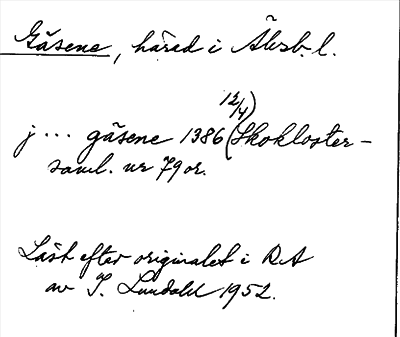 Gäsene, härad i Älvsb. l.
12/4)
j ... gäsene 1386 (Skokloster-
saml. nr 79 or.
Läst efter originalet i RA
av I. Lundahl 1952.